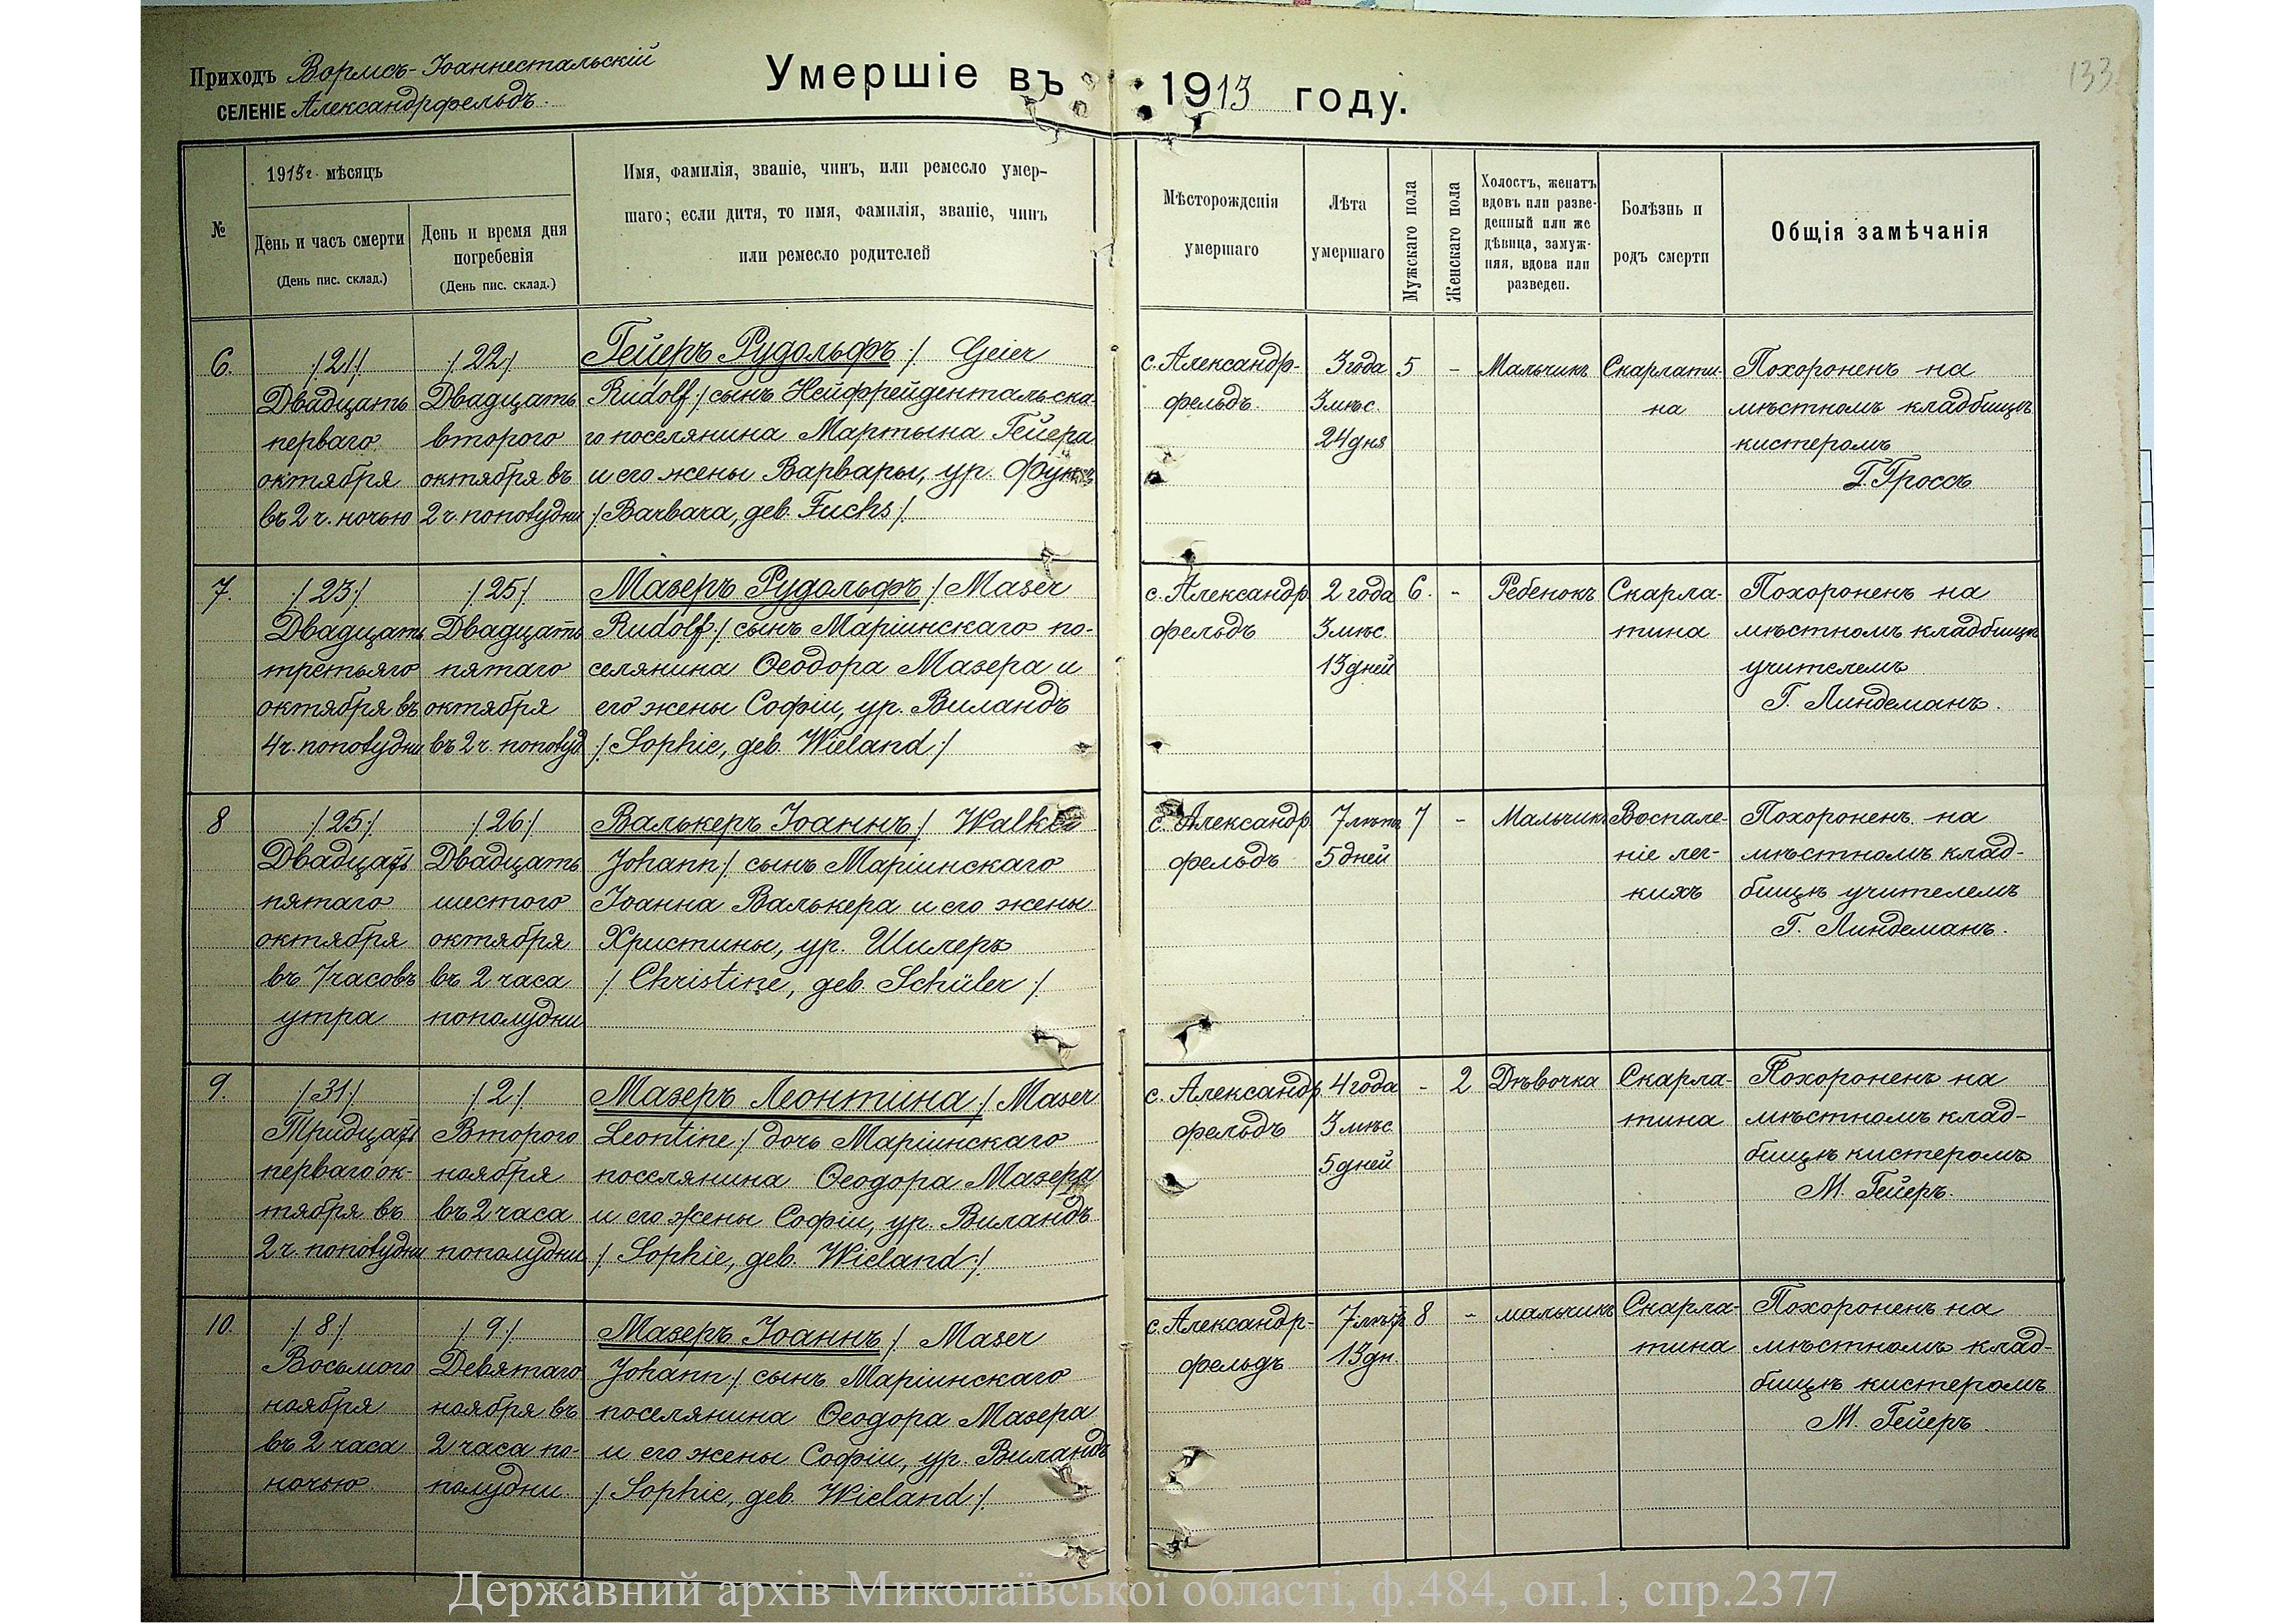 133
Приходъ Вормсъ-Іоаннестальскій
СЕЛЕНІЕ Александрфельдъ.
Умершіе въ 1913 году.
№
1913 г. мѣсяцъ
День и часъ смерти
(День пис. склад.)
День и время дня
погребенія
(День пис. склад.)
Имя, фамилія, званіе, чинъ, или ремесло умер-
шаго; если дитя, то имя, фамилія, званіе, чинъ
или ремесло родителей
Мѣсторожденія
умершаго
Лѣта
умершаго
Мужскаго пола
Женскаго пола
Холостъ, женатъ
вдовъ или разве-
денный или же
дѣвица, замуж-
няя, вдова или
разведен.
Болѣзнь и
родъ смерти
Общія замѣчанія
6.
/21/
Двадцать
перваго
октября
въ 2 ч. ночью
/22/
Двадцать
второго
октября въ
2 ч. пополудни
Гейеръ Рудольфъ / Geier
Rudolf / сынъ Нейфрейдентальска-
го поселянина Мартына Гейера
и его жены Варвары, ур. Фуксъ
/ Barbara, geb. Fuchs /.
с. Александр-
фельдъ.
3 года
3 мѣс.
24 дня
5
-
Мальчикъ
Скарлати-
на
Похороненъ на
мѣстномъ кладбищѣ
кистеромъ
Г. Гроссъ
7.
/23/
Двадцать
третьяго
октября въ
4 ч. пополудни
/25/
Двадцать
пятаго
октября
въ 2 ч. пополуд.
Мазеръ Рудольфъ / Maser
Rudolf / сынъ Маріинскаго по-
селянина Ѳеодора Мазера и
его жены Софіи, ур. Виландъ
/ Sophie, geb. Wieland /
с. Александр
фельдъ
2 года
3 мѣс.
13 дней
6.
-
Ребенокъ
Скарла-
тина
Похороненъ на
мѣстномъ кладбищѣ
учителемъ
Г. Линдеманъ.
8
/25/
Двадцать
пятаго
октября
въ 7 часовъ
утра
/26/
Двадцать
шестого
октября
въ 2 часа
пополудни
Валькеръ Іоаннъ / Walker
Johann / сынъ Маріинскаго
Іоанна Валькера и его жены
Христины, ур. Шилеръ
/ Christine, geb. Schüler /.
с. Александр
фельдъ
7 лѣтъ
5 дней
7
-
Мальчикъ
Воспале-
ніе лег-
кихъ
Похороненъ на
мѣстномъ клад-
бищѣ учителемъ
Г. Линдеманъ.
9.
/31/
Тридцать
перваго ок-
тября въ
2 ч. пополудни
/2/
Второго
ноября
въ 2 часа
пополудни
Мазеръ Леонтина / Maser
Leontine / дочь Маріинскаго
поселянина Ѳеодора Мазера
и его жены Софіи, ур. Виландъ
/ Sophie, geb. Wieland /.
с. Александр
фельдъ
4 года
3 мѣс.
5 дней
-
2
Дѣвочка
Скарла-
тина
Похороненъ на
мѣстномъ клад-
бищѣ кистеромъ
М. Гейеръ.
10.
/8/
Восьмого
ноября
въ 2 часа
ночью
/9/
Девятаго
ноября въ
2 часа по-
полудни
Мазеръ Іоаннъ / Maser
Johann / сынъ Маріинскаго
поселянина Ѳеодора Мазера
и его жены Софіи, ур. Виландъ
/ Sophie, geb. Wieland /.
с. Александр-
фельдъ
7 лѣтъ
13 дн.
8
-
мальчикъ
Скарла-
тина
Похороненъ на
мѣстномъ клад-
бищѣ кистеромъ
М. Гейеръ.
Державний архів Миколаївської області, ф.484, оп.1, спр.2377